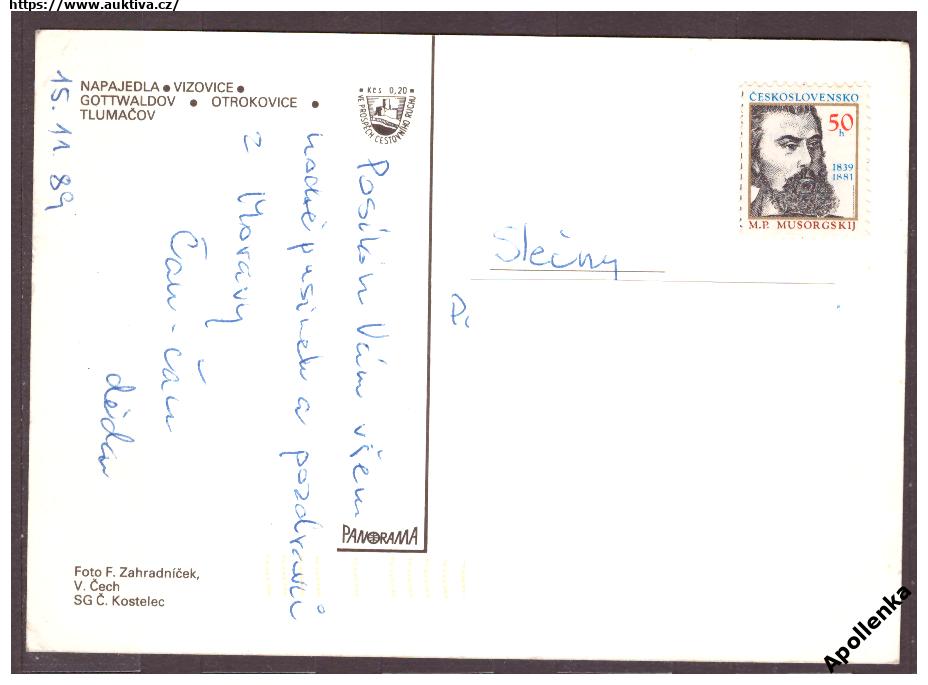 https://www.auktiva.cz/
NAPAJEDLA • VIZOVICE •
GOTTWALDOV • OTROKOVICE •
TLUMAČOV
15. 11. 89
Kčs 0,20
VE PROSPĚCH CESTOVNÍHO RUCHU
Posílám Vám všem
hodně pusinek a pozdravů
z Moravy
Čau - čau
dědau
PANORAMA
Foto F. Zahradníček,
V. Čech
SG Č. Kostelec
ČESKOSLOVENSKO
50 h
1839
1881
M.P. MUSORGSKIJ
Slečny
Apollenka